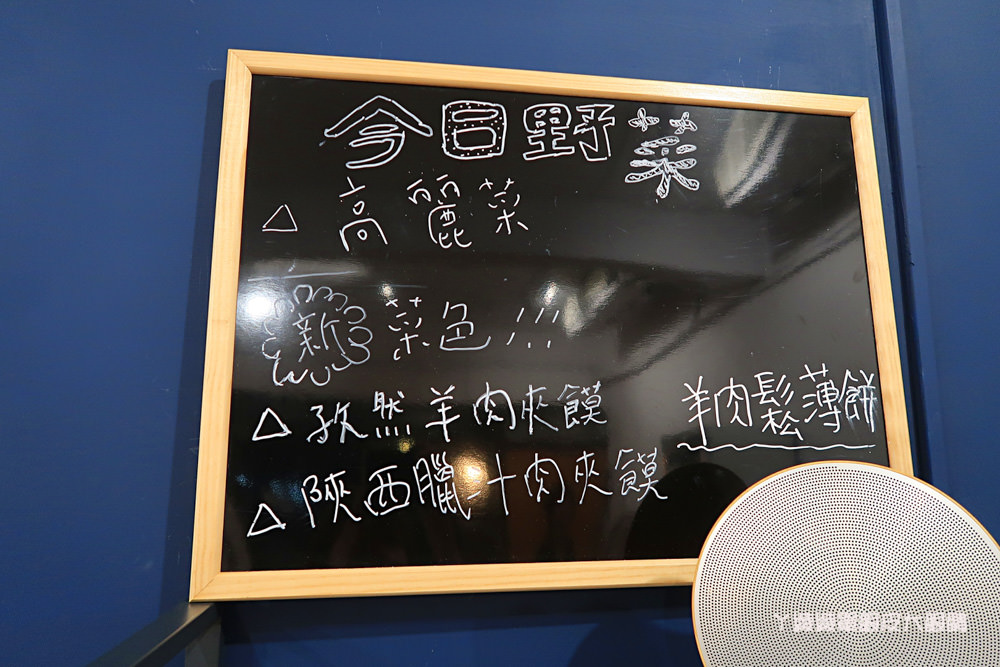 今日野菜
△高麗菜
新菜色!!!
△孜然羊肉夾饃
羊肉鬆薄餅
△陝西臘汁肉夾饃